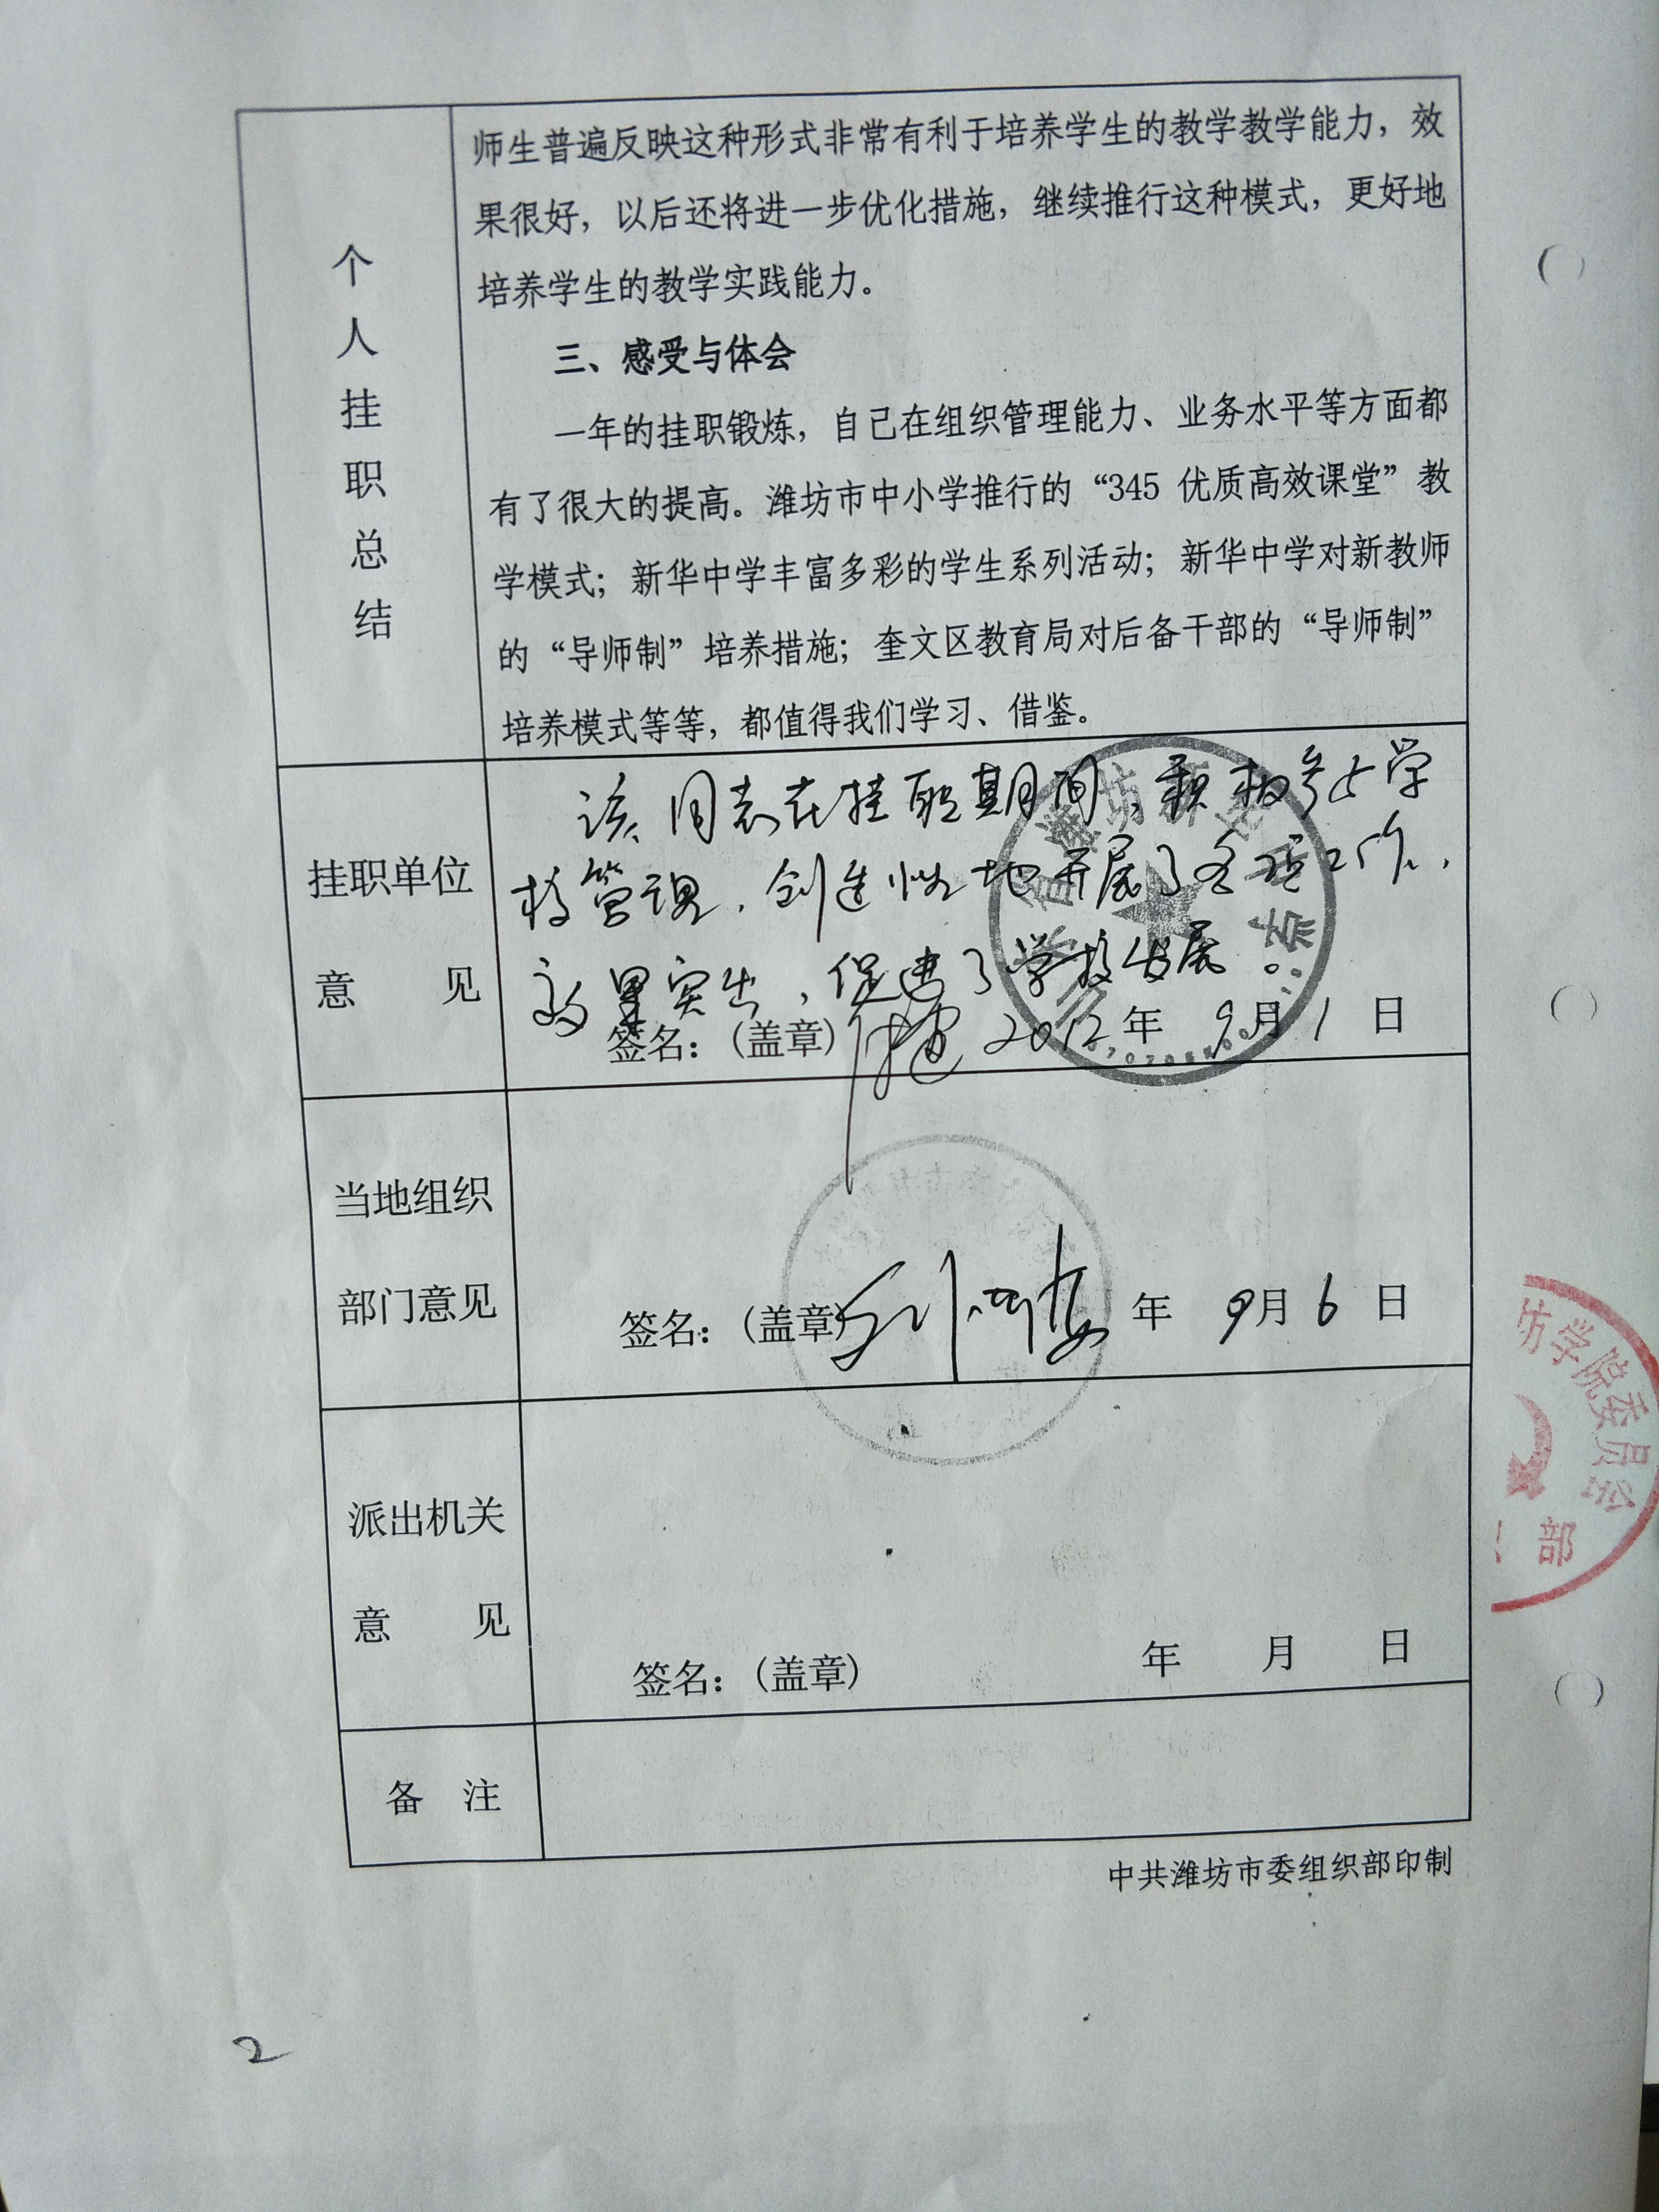 个人挂职总结
师生普遍反映这种形式非常有利于培养学生的教学教学能力，效
果很好，以后还将进一步优化措施，继续推行这种模式，更好地
培养学生的教学实践能力。
三、感受与体会
一年的挂职锻炼，自己在组织管理能力、业务水平等方面都
有了很大的提高。潍坊市中小学推行的“345 优质高效课堂”教
学模式；新华中学丰富多彩的学生系列活动；新华中学对新教师
的“导师制”培养措施；奎文区教育局对后备干部的“导师制”
培养模式等等，都值得我们学习、借鉴。
挂职单位
意 见
该同志在挂职期间，积极参与学
校管理，创造性地开展了各项工作，
效果突出，促进了学校发展。
签名：（盖章） 2012年 9月 1 日
当地组织
部门意见
签名：（盖章） 年 9月 6 日
派出机关
意 见
签名：（盖章） 年 月 日
备 注
中共潍坊市委组织部印制
坊学院委员会
部
2